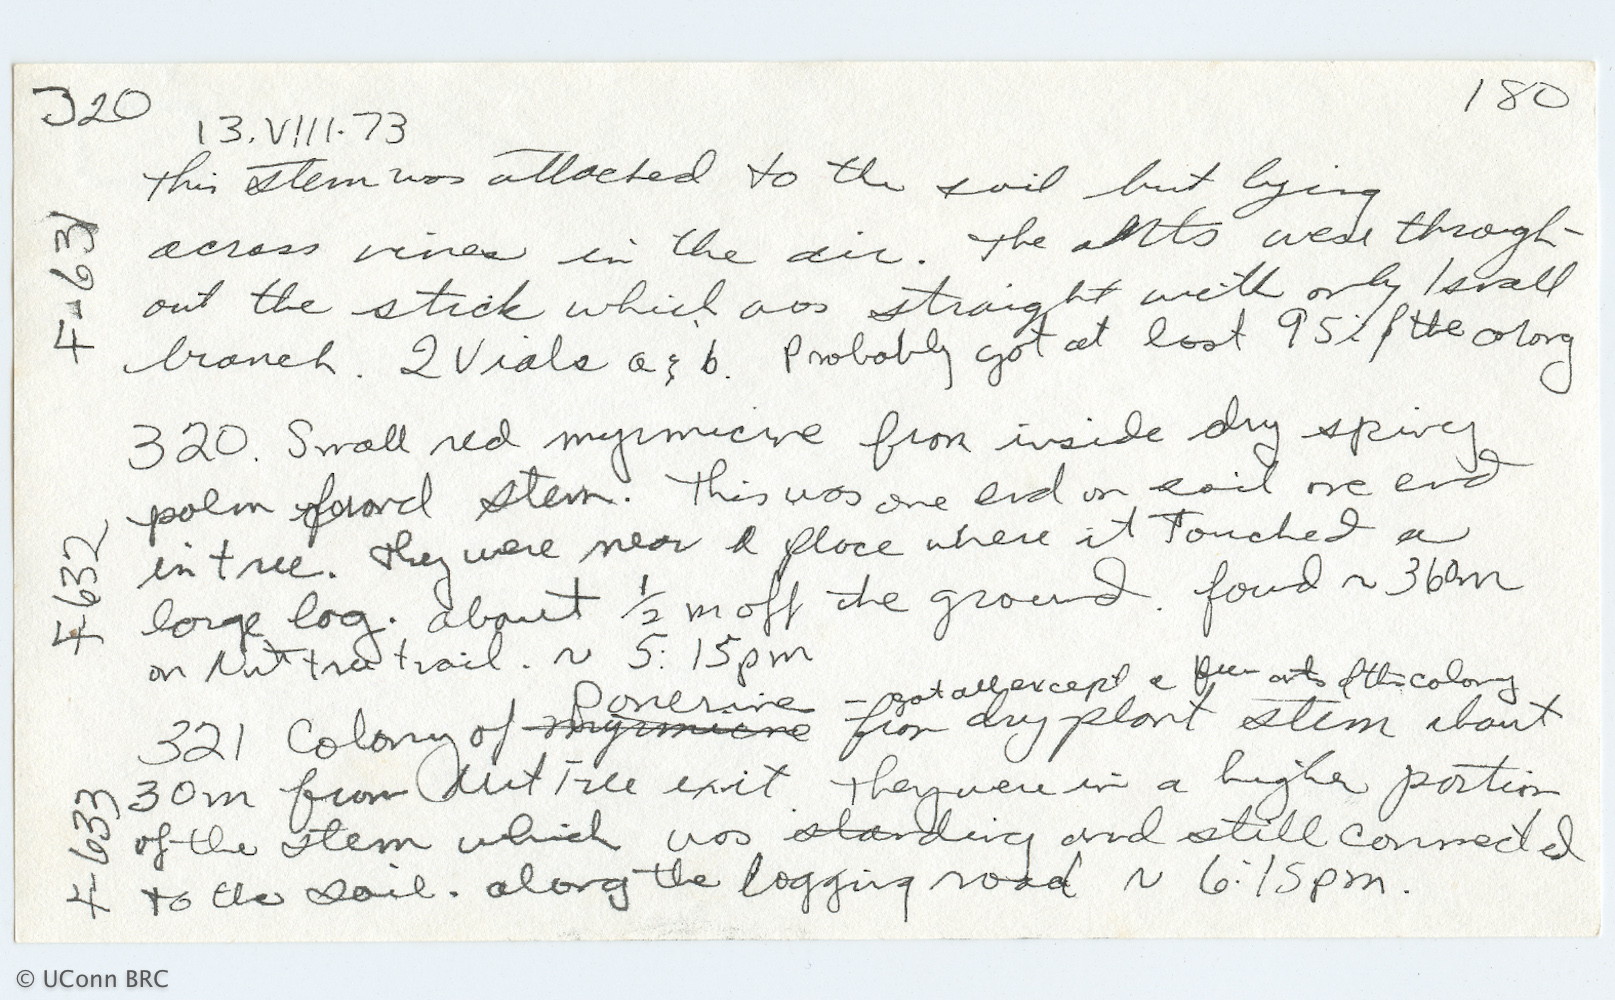 320
180
13.VIII.73
This stem was attached to the soil but lying
across vines in the air. The ants were through-
out the stick which was straight with only 1 small
branch. 2 Vials a & b. Probably got at least 95% of the colony
F-631
320. Small red myrmicine from inside dry spiny
palm frond stem. This was one end on soil one end
in tree. They were near a place where it Touched a
large log. about ½ m off the ground. found ~ 360m
on Nut tree trail. ~ 5:15pm
F-632
Ponerine - got all except a few ants of this colony
321 Colony of myrmicine from dry plant stem about
30m from Nut Tree exit. They were in a higher portion
of the stem which was standing and still connected
to the soil. along the logging road ~ 6:15pm.
F-633
© UConn BRC